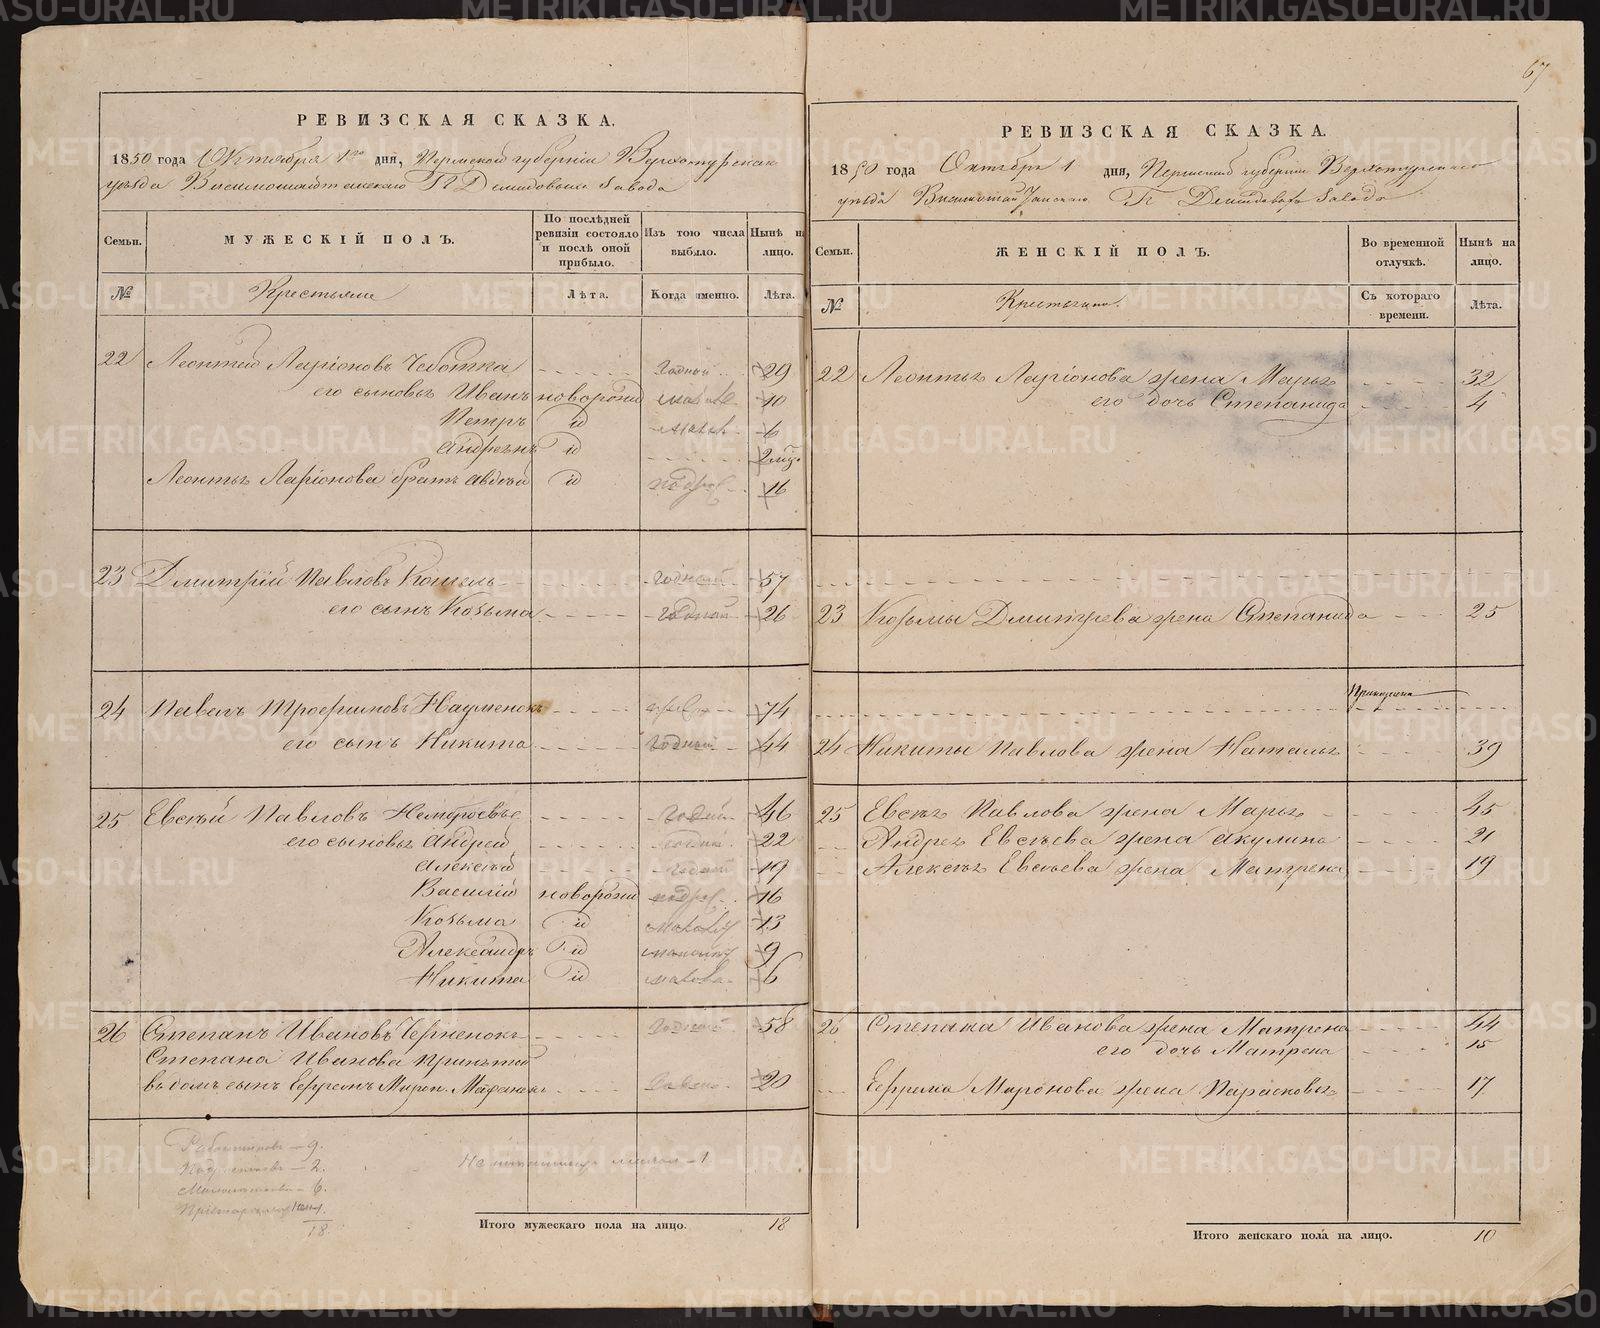 67
РЕВИЗСКАЯ СКАЗКА.
1850 года Октября 1го дня, Пермской губернии Верхотурскаго
уѣзда Висимошайтанскаго П Демидовыхъ Завода
Семьи.
МУЖЕСКІЙ ПОЛЪ.
По послѣдней ревизіи состояло и послѣ оной прибыло.
Изъ того числа выбыло.
Нынѣ на лицо.
№
Крестьяне
Лѣта.
Когда именно.
Лѣта.
22 Леонтей Ларіоновъ Чеботка годной 29
его сыновья Иванъ новорожд малол 10
Петръ id малол 6
Андреянъ id
Леонтья Ларіонова братъ Авдѣй id подрос 16
23 Дмитрій Павловъ Кошель годной 57
его сынъ Козьма годной 26
24 Павелъ Трофимовъ Науменокъ 74
его сынъ Никита годной 44
25 Евсѣй Павловъ годной 46
его сыновья Андрей годной 22
Алексѣй годной 19
Василій новорожд подрос 16
Козьма id малол 13
Александръ id малол 9
Никита id малол 6
26 Степанъ Ивановъ Черненокъ годной 58
Степана Иванова принятой
въ домъ сынъ Ефремъ Мирон. 20
Работниковъ – 9.
Подростковъ – 2.
Малолѣтковъ – 6.
18.
Итого мужескаго пола на лицо. 18
РЕВИЗСКАЯ СКАЗКА.
1850 года Октября 1 дня, Пермской губерніи Верхотурскаго
уѣзда Висимошайтанскаго П Демидовыхъ Завода
Семьи.
ЖЕНСКІЙ ПОЛЪ.
Во временной отлучкѣ.
Нынѣ на лицо.
№
Крестьянки.
Съ котораго времени.
Лѣта.
22 Леонтья Ларіонова жена Марья 32
его дочь Степанида 4
23 Козьмы Дмитрева жена Степанида 25
24 Никиты Павлова жена Наталья 39
25 Евсѣя Павлова жена Марья 45
Андрея Евсѣева жена Акулина 21
Алексѣя Евсѣева жена Матрена 19
26 Степана Иванова жена Матрена 44
его дочь Матрена 15
Ефрема Миронова жена Парасковья 17
Итого женскаго пола на лицо. 10
METRIKI.GASO-URAL.RU